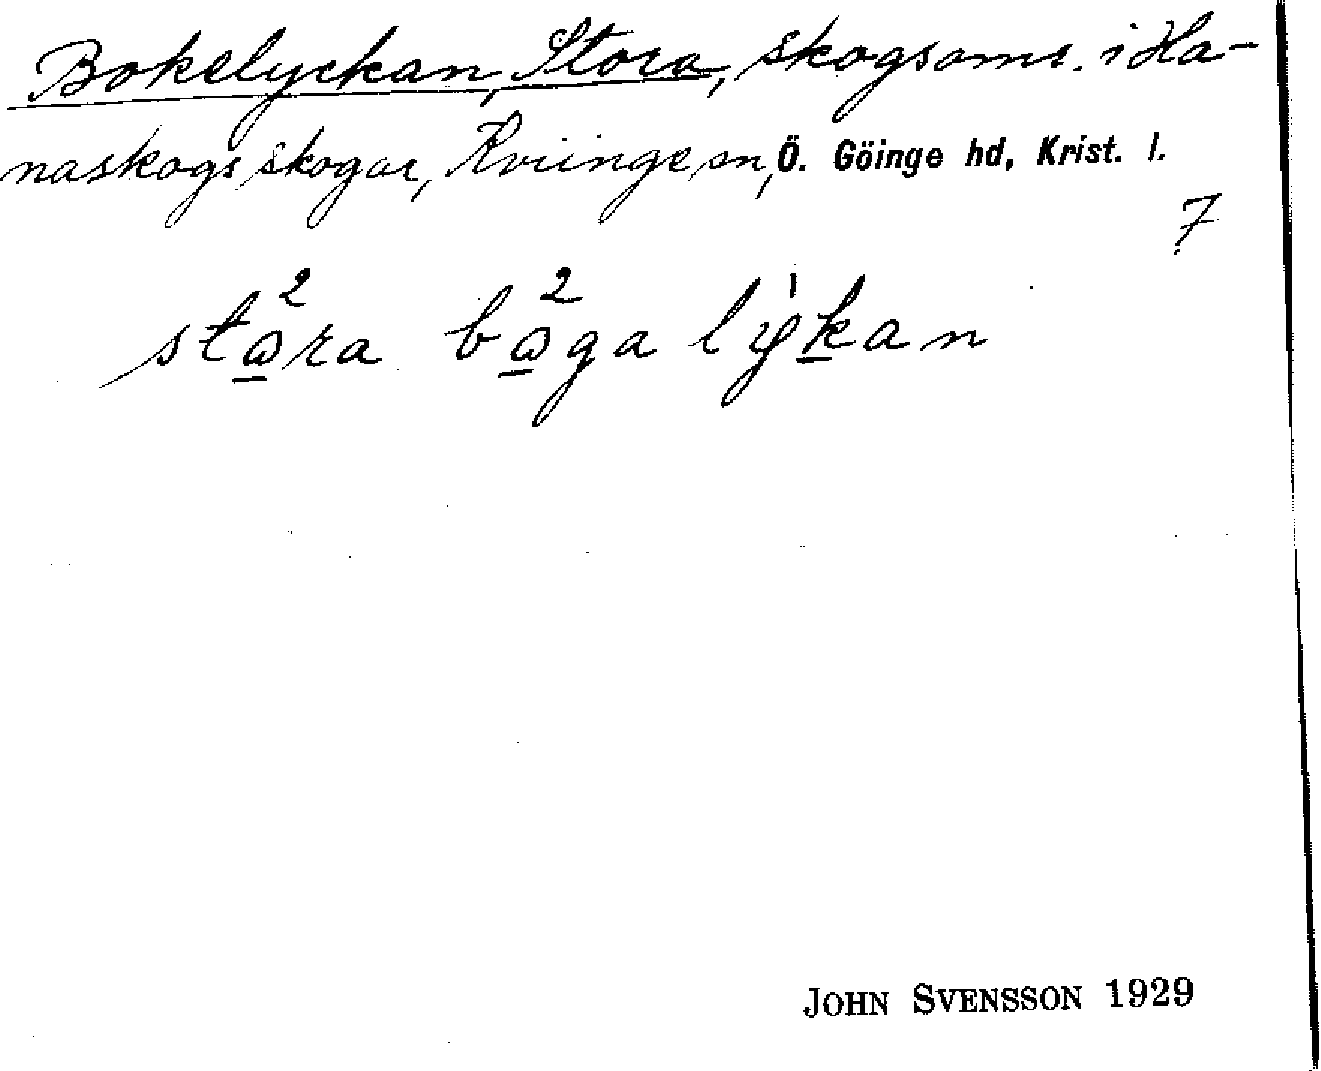 Bokelyckan, Stora, skogsområ. i Ha-
naskogs skogar, Kviinge sn, Ö. Göinge hd, Krist. l.
7
stɷ̱²ra bɷ̱²ga lẏ¹ḵan
JOHN SVENSSON 1929